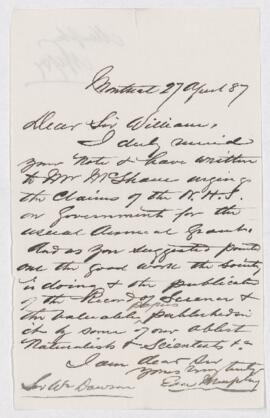 Montreal 27 April 87
Dear Sir William,
I duly received
your note & have written
to Mr McShane urging
the Claims of the N. H. S.
on Government for the
usual Annual Grant.
And as you suggested point
out the good work the society
is doing & the publication
of the Record of Science &
the valuable papers published in
it by some of our ablest
Naturalists & Scientists &c
I am dear Sir
yours very truly
Murphy
Sir Wm Dawson